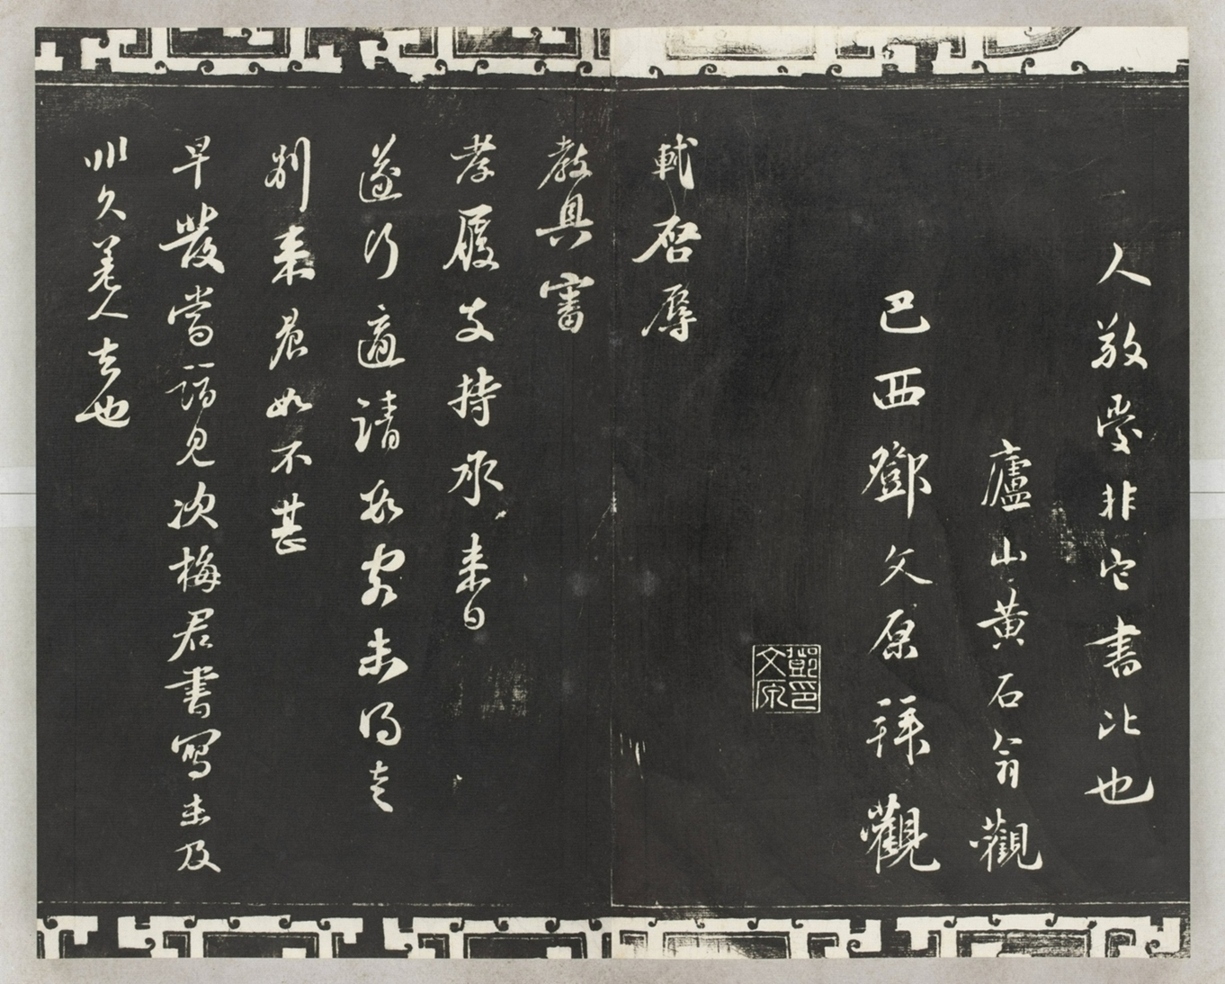 人敬愛非它書比也
廬山黄石翁觀
巴西鄧文原拜觀
鄧文原印
軾啓辱
教具審
孝履支持承来日
遂行適請數客未得走
別来晨如不甚
早發當詣見次梅君書寫未及
非久差人去也